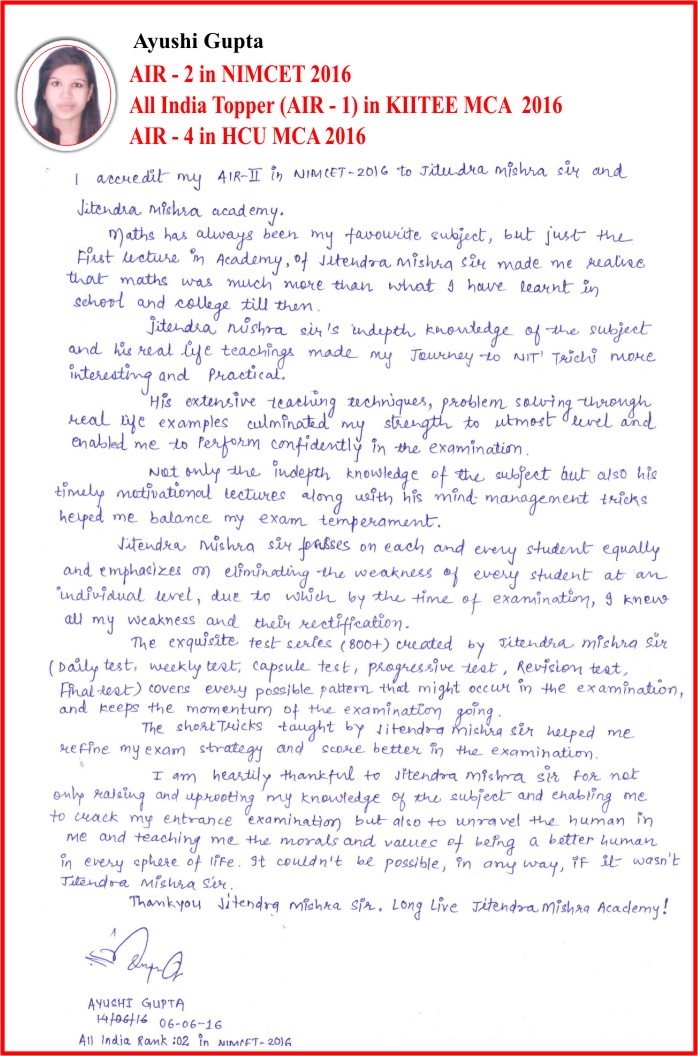 Ayushi Gupta
AIR - 2 in NIMCET 2016
All India Topper (AIR - 1) in KIITEE MCA 2016
AIR - 4 in HCU MCA 2016
I accredit my AIR-II in NIMCET-2016 to Jitendra Mishra Sir and
Jitendra Mishra academy.
Maths has always been my favourite subject, but just the
First lecture in Academy, of Jitendra Mishra Sir made me realise
that maths was much more than what I have learnt in
school and college till then.
Jitendra Mishra sir's indepth knowledge of the subject
and his real life teachings made my Journey to NIT' Trichi more
interesting and Practical.
His extensive teaching techniques, problem solving through
real life examples culminated my strength to utmost level and
enabled me to Perform confidently in the examination.
Not only the indepth knowledge of the subject but also his
timely motivational lectures along with his mind management tricks
helped me balance my exam temperament.
Jitendra Mishra Sir focusses on each and every student equally
and emphasizes on eliminating the weakness of every student at an
individual level, due to which by the time of examination, I knew
all my weakness and their rectification.
The exquisite test series (800+) created by Jitendra Mishra Sir
(Daily test, weekly test, capsule test, progressive test, Revision test,
Final test) covers every possible pattern that might occur in the examination,
and keeps the momentum of the examination going.
The short Tricks taught by Jitendra Mishra Sir helped me
refine my exam strategy and score better in the examination.
I am heartily thankful to Jitendra Mishra Sir for not
only raising and uprooting my knowledge of the subject and enabling me
to crack my entrance examination but also to unravel the human in
me and teaching me the morals and values of being a better human
in every sphere of life. It couldn't be possible, in any way, if it wasn't
Jitendra Mishra Sir.
Thankyou Jitendra Mishra Sir. Long Live Jitendra Mishra Academy!
AYUSHI GUPTA
14/06/16 06-06-16
All India Rank : 02 in NIMCET-2016